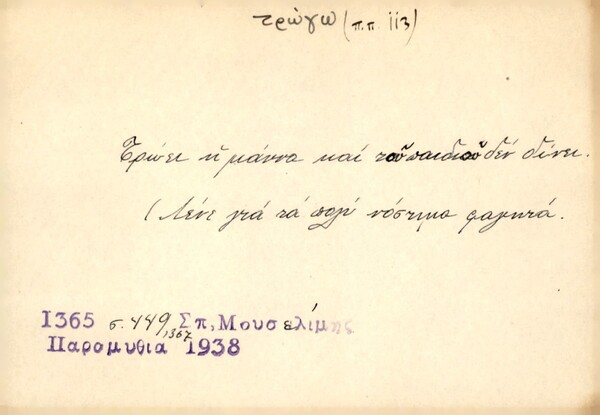 τρώγω (π.π. 113)
Τρώει ἡ μάννα καί τοῦ παιδιοῦ δέν δίνει.
(Λένε γιά τά πολύ νόστιμα φαγητά.
1365 σ. 449, 1367 Σπ. Μουσελίμης
Παραμυθια 1938